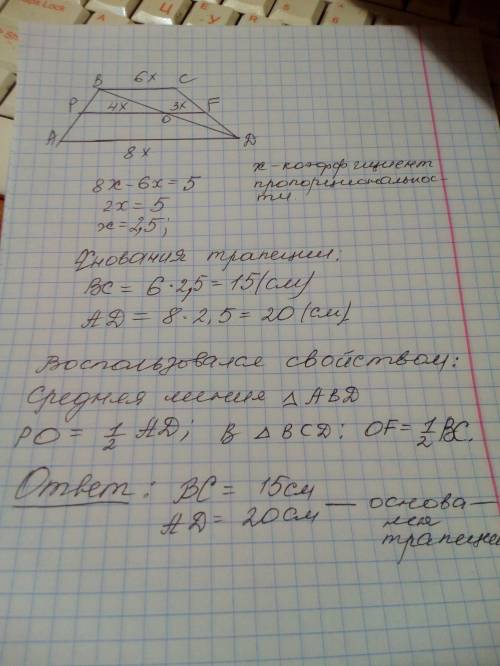 6x
B C
P 4x 3x F
O
A D
8x
x - коэффициент
пропорциональнос-
ти.
8x - 6x = 5
2x = 5
x = 2,5;
Основания трапеции:
BC = 6 · 2,5 = 15 (см)
AD = 8 · 2,5 = 20 (см)
Воспользовался свойством:
Средняя линия △ ABD
PO = 1/2 AD; В △ BCD: OF = 1/2 BC.
Ответ: BC = 15см
AD = 20см — основа-
ния
трапеции